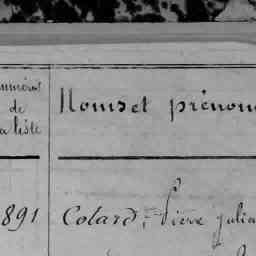 numéros
de
la liste
Noms et prénoms
891
Colard, Pierre Julia